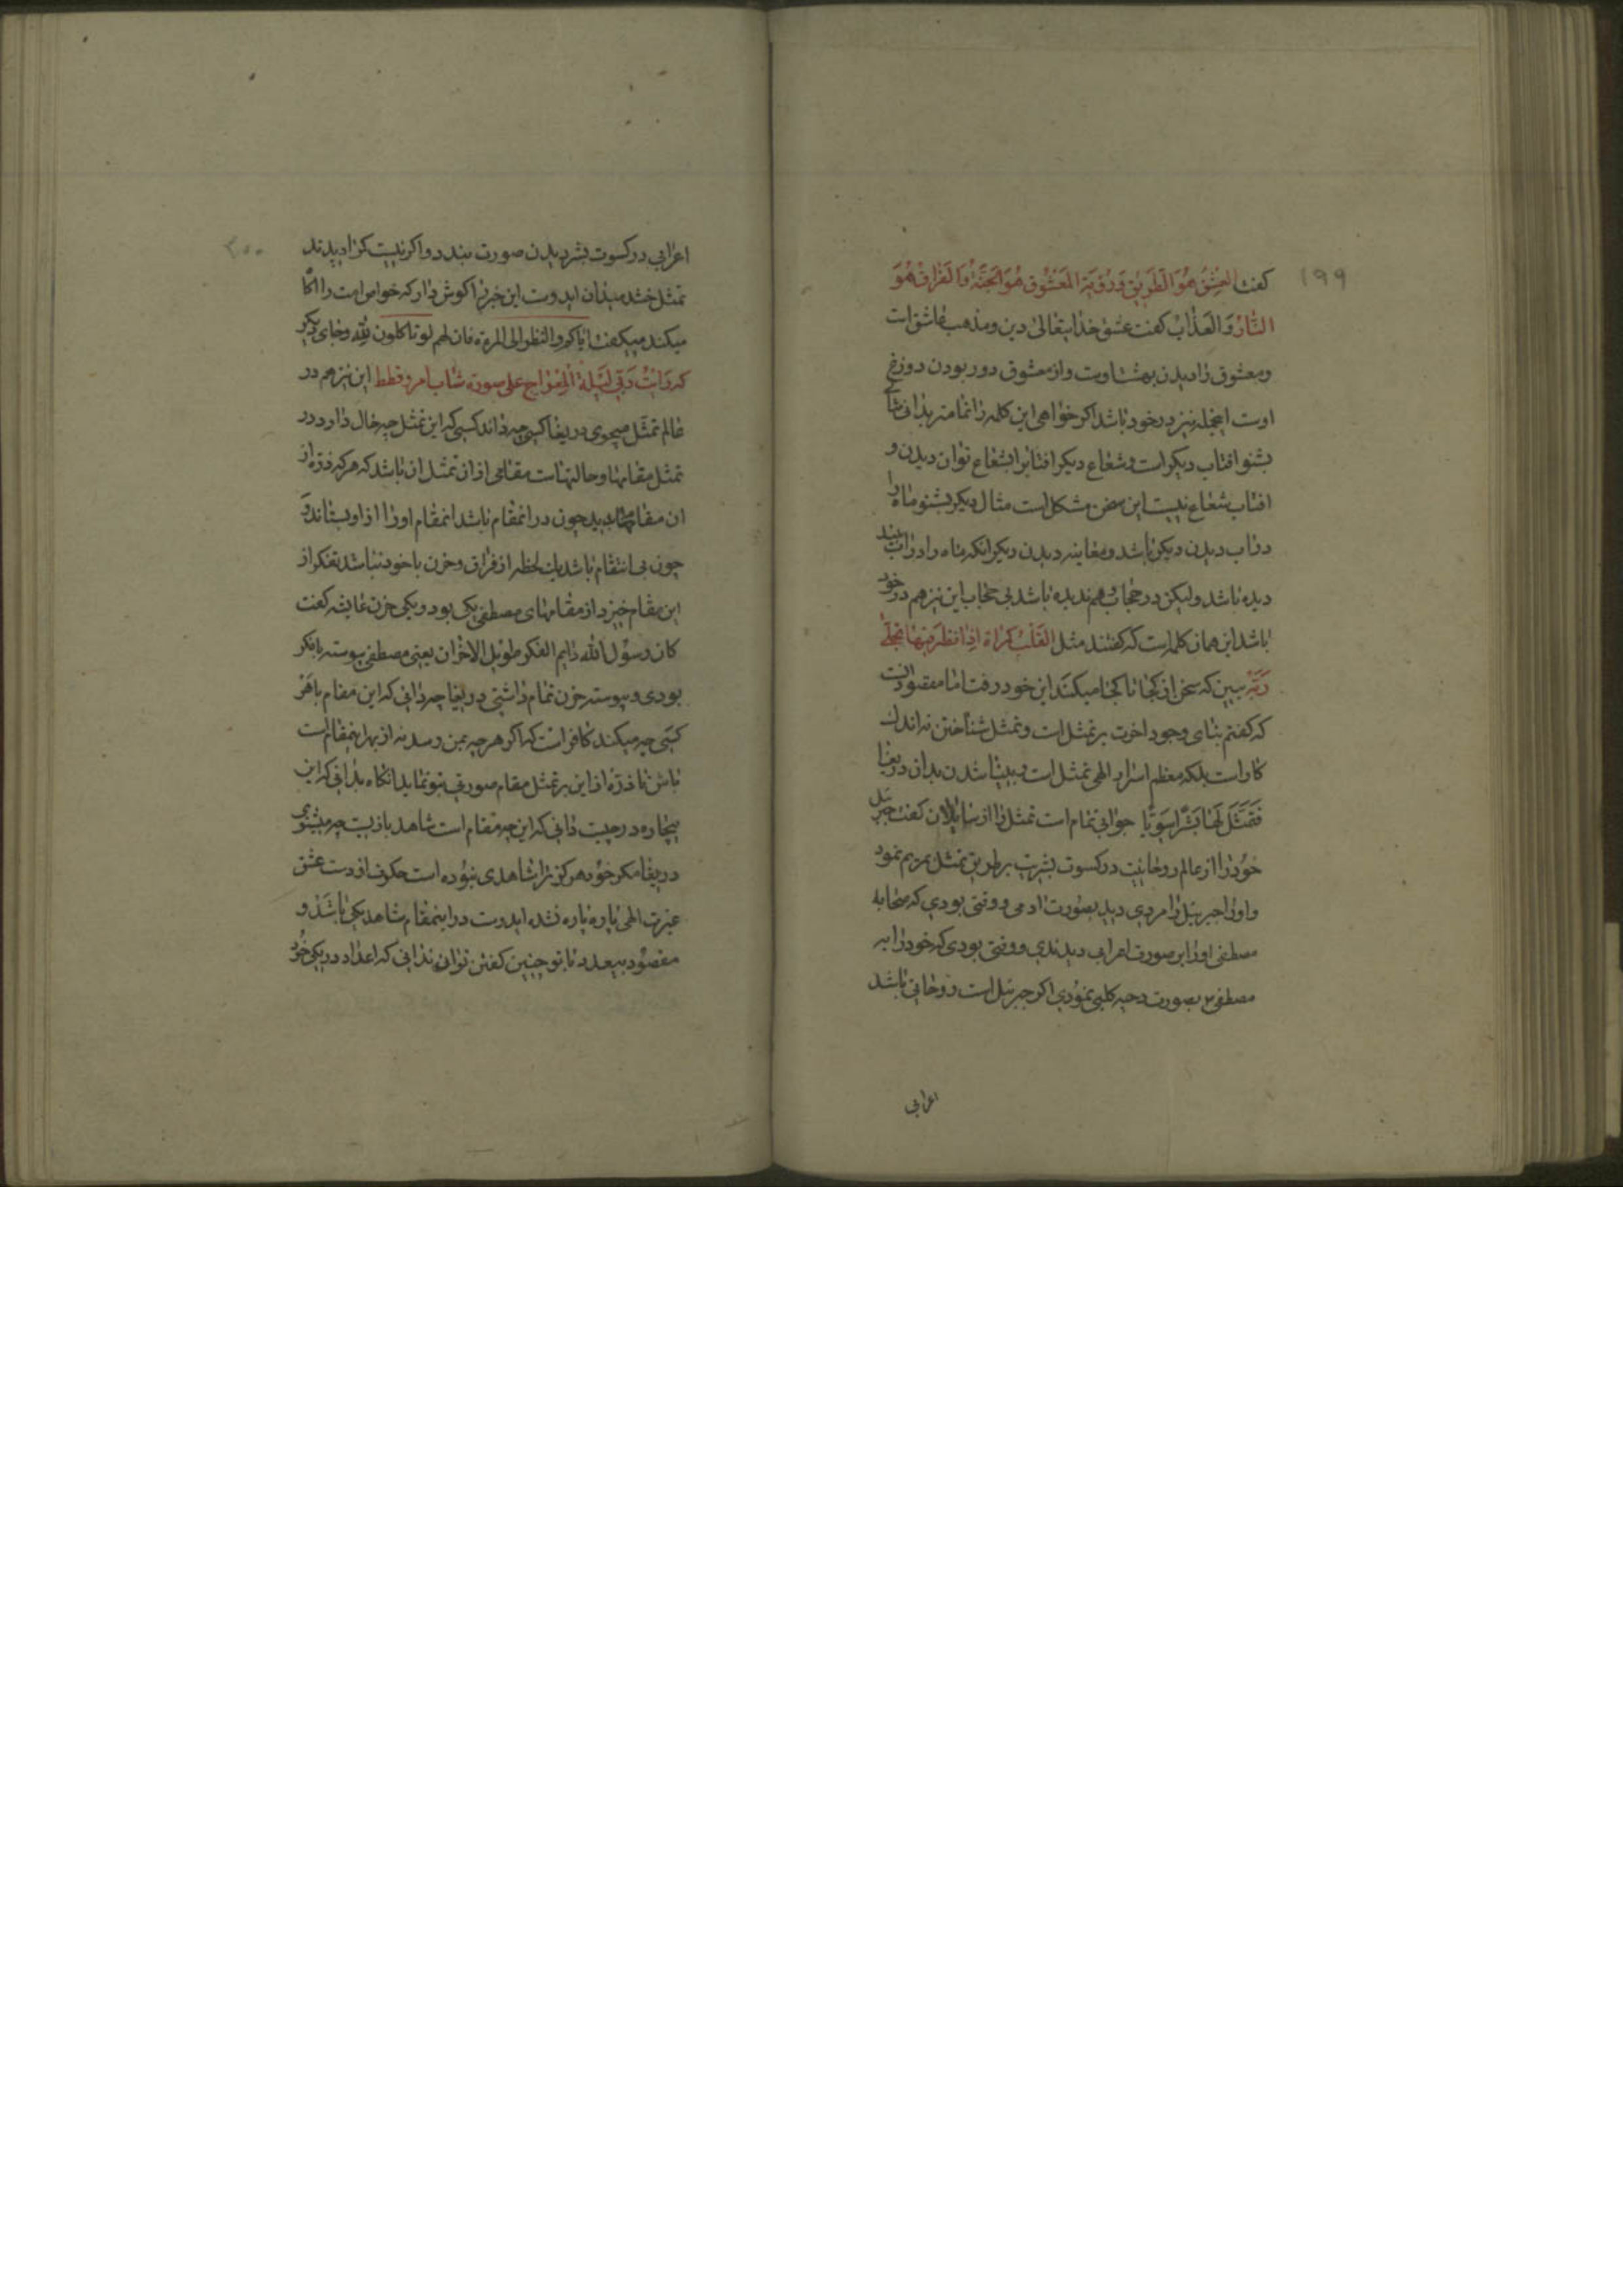 ۱۹۹
کفت العِشْقُ هُوَ الَطَریٖق وَرُؤیَة المَعْشُوق هُوَ الَجَنَّةُ وَالَفَراقُ هُوَ
النّٰارُ وَالَعَذٰابُ کفت عشق خدایتعالی دین ومذهب عاشق است
ومعشوق را دیدن بهشت اوست واز معشوق دور بودن دوزخ
اوست اینجمله نیز در خود باشد اکر خواهی این کلمه را تمامتر بدانی
بشنو افتاب دیکر است وشعاع دیکر افتابرا بشعاع توان دیدن و
افتاب بیشعاع نیست این سخن مشکل است مثال دیکر بشنو ماه را
دراب دیدن دیکر باشد ومعاینه دیدن دیکر انکه ماه را دراب بیند
دیده باشد ولیکن در حجاب وهم ندیده باشد بی حجاب این نیز هم درخود
باشد این همان کلمه است که کفتند مثل القَلْب کمراة اِذا نظر فیها تجلّی
رَبّهُ ببین که سخن از کجا تا کجا میکشد این خود رفت اما مقصود انست
که کفتم بنای وجود اخرت بر تمثل است وتمثل شناختن نه اندک
کار است بلکه معظم اسرار الهی تمثل است وبینا شدن بدان دریغا
فَتَمَثَّلَ لَهٰا بَشَرًا سَوِیًّا جوابی تمام است تمثل را از سایلان کفت جبرئیل
خود را از عالم روحانیت در کسوت بشریت بر طریق تمثل بمریم نمود
واو را جبرئیل را مردی دید بصورت ادمی ووقتی بودی که صحابه
مصطفی اورا بر صورت اعرابی دیدندی ووقتی بودی که خود را به
مصطفی بصورت دحیه کلبی نمودی اکر جبرئیل است روحانی باشد
اعرابی
۲۰۰
اعرابی در کسوت بشر دیدن صورت بندد واکر نیست کرا دیدند
تمثل خشک میدان ایدوست این خبر را کوش دار که خواص امت را اکاه
میکند میکفت ایاکم والنظر الی المرد فان لهم لونا کلون الله وجای دیکر
که رَایْتُ رَبّی لَیْلَةَ الْمِعْراجِ علی صورة شاب امرد قطط این نیز هم در
عالم تمثل میجوی دریغا کسی چه داند کسی که این تمثل چه حال دارد در
تمثل مقامها وحالتهاست مقامی ازان تمثل ان باشد که هر که ذرّه از
ان مقام بدید چون در انمقام باشد انمقام اورا از او بستاند و
چون بی انمقام باشد یک لحظه از فراق وحزن باخود نباشد تفکر از
این مقام خیزد از مقامهای مصطفی یکی بود ویکی حزن عایشه کفت
کان رسول الله دایم الفکر طویل الاحزان یعنی مصطفی پیوسته با فکر
بودی وپیوسته حزن تمام داشتی دریغا چه دانی که این مقام باهر
کسی چه میکند کافر است که اکر هرچه بمن رسد نه از بهر اینمقام است
باش تا ذرّه از این بر تمثل مقام صورتی بتو نماید انکاه بدانی که این
بیچاره در چیست دانی که این چه مقام است شاهد بازیست چه میشنوی
دریغا مکر خود هرکز ترا شاهدی نبوده است جکرت از دست عشق
غیرت الهی پاره پاره نشده ایدوست در اینمقام شاهد یکی باشد و
مقصود بیعدد تا بتو چنین کفتن توان ندانی که اعداد در یکی خود